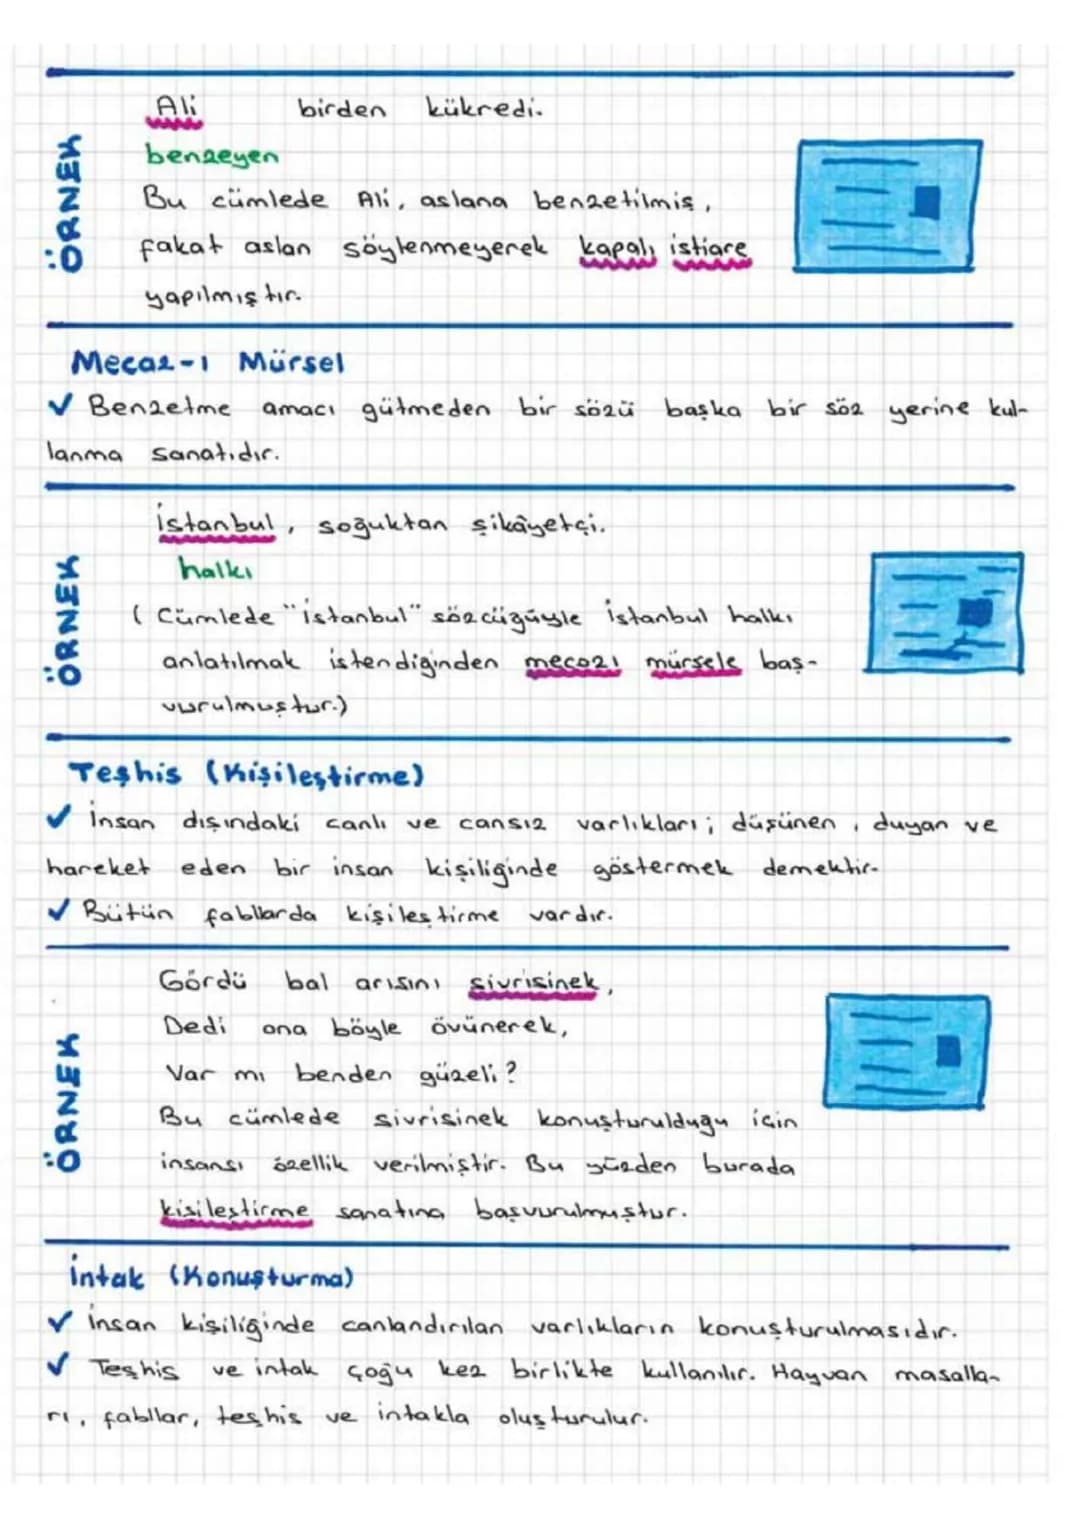 Ali birden kükredi.
benzeyen
ÖRNEK
Bu cümlede Ali, aslana benzetilmiş,
fakat aslan söylenmeyerek kapalı istiare
yapılmıştır.
Mecaz-ı Mürsel
✓ Benzetme amacı gütmeden bir sözü başka bir söz yerine kul-
lanma sanatıdır.
İstanbul, soğuktan şikâyetçi.
halkı
ÖRNEK
( Cümlede "İstanbul" sözcüğüyle İstanbul halkı
anlatılmak istendiğinden mecazı mürsele baş-
vurulmuştur.)
Teşhis (Kişileştirme)
✓ İnsan dışındaki canlı ve cansız varlıkları; düşünen, duyan ve
hareket eden bir insan kişiliğinde göstermek demektir.
✓ Bütün fabllarda kişileştirme vardır.
Gördü bal arısını sivrisinek,
Dedi ona böyle övünerek,
Var mı benden güzeli?
ÖRNEK
Bu cümlede sivrisinek konuşturulduğu için
insansı özellik verilmiştir. Bu yüzden burada
kişileştirme sanatına başvurulmuştur.
İntak (Konuşturma)
✓ İnsan kişiliğinde canlandırılan varlıkların konuşturulmasıdır.
✓ Teşhis ve intak çoğu kez birlikte kullanılır. Hayvan masalla-
rı, fabllar, teşhis ve intakla oluşturulur.